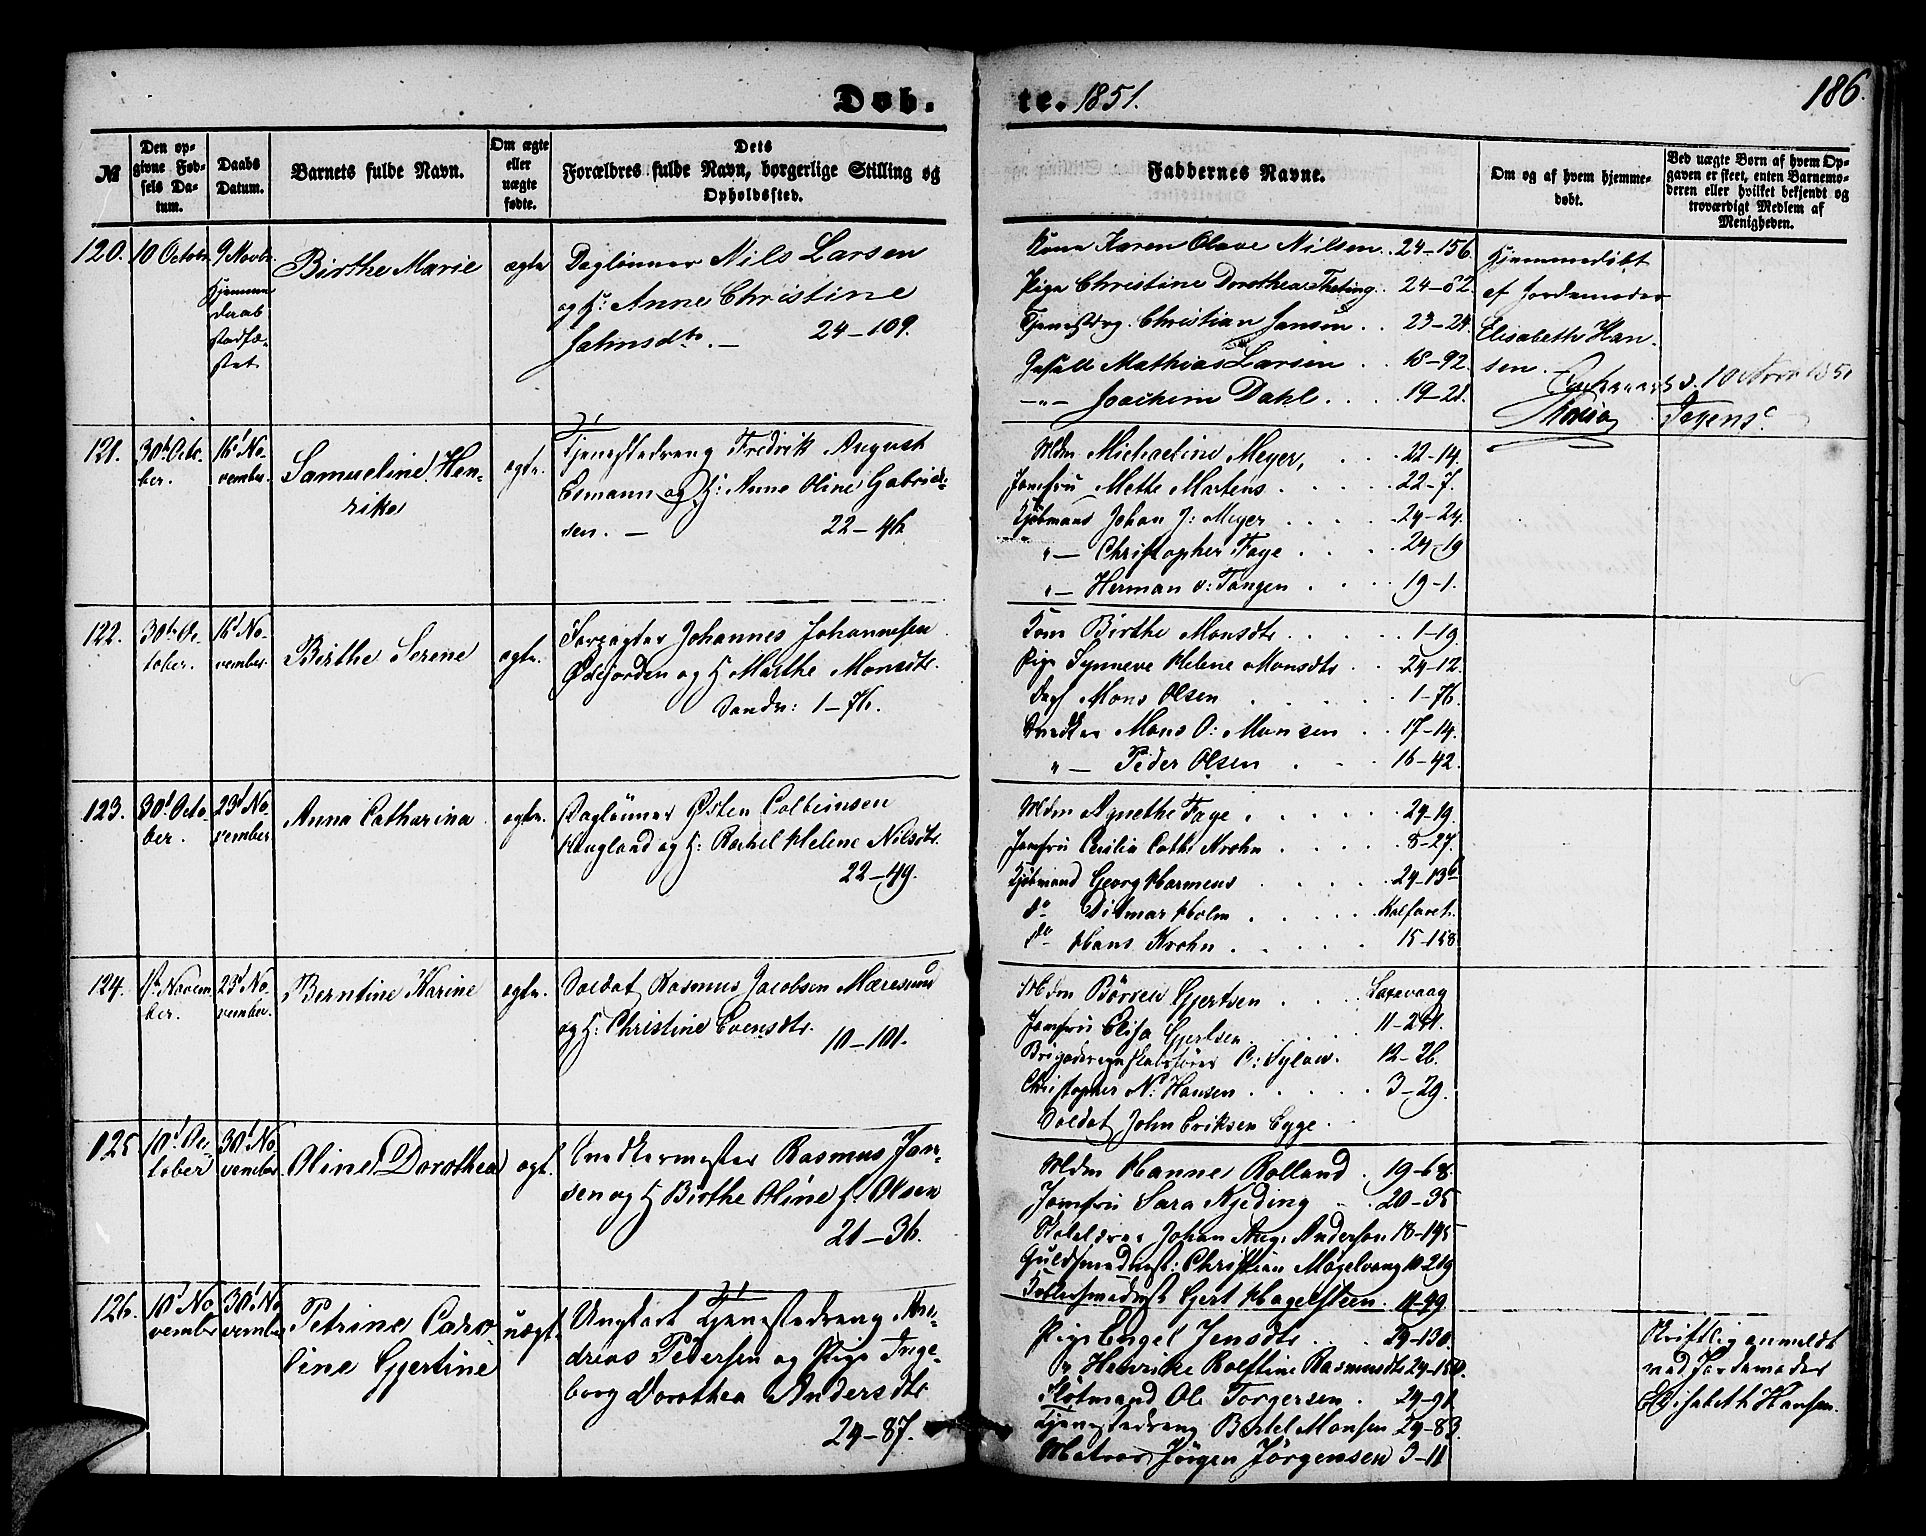 Døb.
te. 1851.
186.
№
Den opgivne Fødsels Datum.
Daabs Datum.
Barnets fulde Navn.
Om ægte eller uægte fødte.
Dets Forældres fulde Navn, borgerlige Stilling og Opholdssted.
Faddernes Navne.
Om og af hvem hjemmedøbt.
Ved uægte Børn af hvem Opgaven er skeet, enten Barnemoderen eller hvilket bekjendt og troværdigt Medlem af Menigheden.
120. 10 Octobr 9 Novbr.
Hjemmedaab stadfæstet
Birthe Marie
ægte
Daglønner Nils Larsen
og H: Anne Christine
Jahnsdtr. — 24-109.
Kone Karen Olave Nilsen.. 24-156.
Pige Christine Dorothea Theting.. 24-82.
Christian Jansen . . 23-24.
Mathias Larsen . . 18-92.
—"— Joachim Dahl. . . . 19-21.
Hjemmedøbt
af Jordemoder
Elisabeth Han-
sen.
121.
30 te Octo-
ber.
16 d No-
vember.
Samueline Hen-
rike
ægte.
Tjenestedreng Fredrik August
Esmann og H: Anne Oline Gabriel-
sen. — 22-46.
Mdm Michaeline Meyer, . . . 22-14.
Jomfru Mette Martens . . . . 22-7.
Kjøbmand Johan J: Meyer . . . . 24-24.
"— Christopher Faye . . . 24-19
"— Herman v: Tangen . . . 19-1.
122.
30 te Oc-
tober.
16 d No-
vember.
Birthe Serine
ægte.
Forpagter Johannes Johannesen
Ødejorden og H. Marthe Monsdtr.
Sandv: 1-76.
Kone Birthe Monsdtr. . . . . 1-19
Pige Synneve Helene Monsdtr . . 24-12.
Mons Olsen . . . . . 1-76.
Snedker Mons O: Monsen . . 17-14.
"— Peder Olsen . . . 16-42.
123.
30 d Octo-
ber.
23 d No-
vember
Anna Catharina
ægte.
Daglønner Østen Colbeinsen
Haugland og H: Rachel Helene Nilsdtr.
22-49.
Mdm Agnethe Faye . . . . . 24-19.
Jomfru Cecilia Cath: Krohn . . . . 8-27.
Kjøbmand Georg Harmens . . . . 24-13 b
do Ditmar Holm . . . . Kalfaret.
do Hans Krohn . . . . . 15-158
124.
1 te Novem-
ber.
23 d No-
vember.
Berntine Karine
ægte.
Soldat Rasmus Jacobsen Mæresund
og H: Christine Evensdtr.
10-101.
Mdm Børreu Gjertsen . . . . Laxevaag
Jomfru Elisa Gjertsen . . . . 11-251.
C: Sylow. 12-26.
Christopher N. Hansen . . . . . 3-29.
Soldat John Eriksen Eyge . .
125
10 d Oc-
tober
30 d No-
vember
Oline Dorothea
ægt.
Snedkermester Rasmus Jan-
sen og H Birthe Oline f. Olsen
21-36.
Mdm Hanne Rolland . 19-68.
Jomfru Sara Kjeding . . 20-35
Johan Aug: Anderson 18-145
Guldsmedmest: Christian Møgelvang 10-219
Gert Hagelsteen. 11-99.
126.
10 d No-
vember
30 d No-
vember
Petrine Caro-
line Gjertine
uægt.
Ungkarl Tjenestedreng An-
dreas Pedersen og Pige Inge-
borg Dorothea Andersdtr.
24-87.
Pige Engel Jensdtr . . . 24-130.
" Henrike Rolftine Rasmusdtr 24-150.
Flotmand Ole Torgersen . 24-91
Tjenestedreng Bertel Monsen 24-83.
Matros Jörgen Jörgensen 3-11
Skriftlig anmeldt
ved Jordemoder
Elisabeth Hansen.